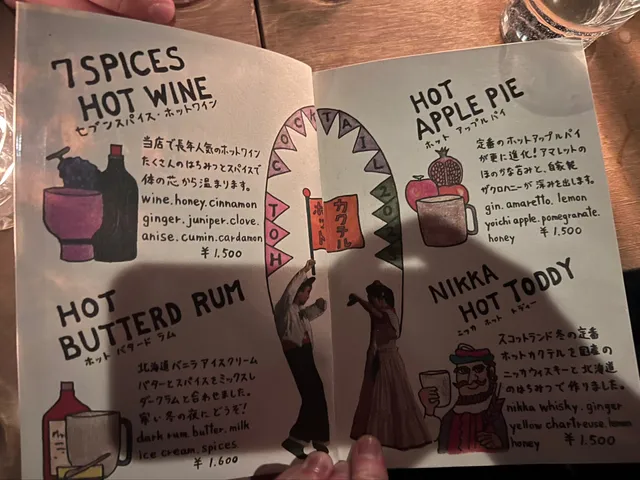 7 SPICES
HOT WINE
セブンスパイス・ホットワイン
当店で長年人気のホットワイン
たくさんのはちみつとスパイスで
体の芯から温まります。
wine.honey.cinnamon
ginger.juniper.clove.
anise.cumin.cardamon
¥1.500
HOT
BUTTERD RUM
ホット バタード ラム
北海道バニラアイスクリーム
バターとスパイスをミックスし
ダークラムと合わせました。
寒い冬の夜にどうぞ!
dark rum.butter.milk
ice cream.spices
¥1.600
HOT COCKTAIL
カクテル
ホット
HOT
APPLE PIE
ホット アップルパイ
定番のホットアップルパイ
が更に進化!アマレットの
ほのかな苦みと、自家製
ザクロニーが深みを出します。
gin.amaretto.lemon
yoichi apple.pomegranate.
honey ¥1.500
NIKKA
HOT TODDY
ニッカ ホット トディー
スコットランド冬の定番
ホットカクテルを国産の
ニッカウィスキーと北海道
のはちみつで作りました。
nikka whisky.ginger
yellow chartreuse.lemon
honey ¥1.500